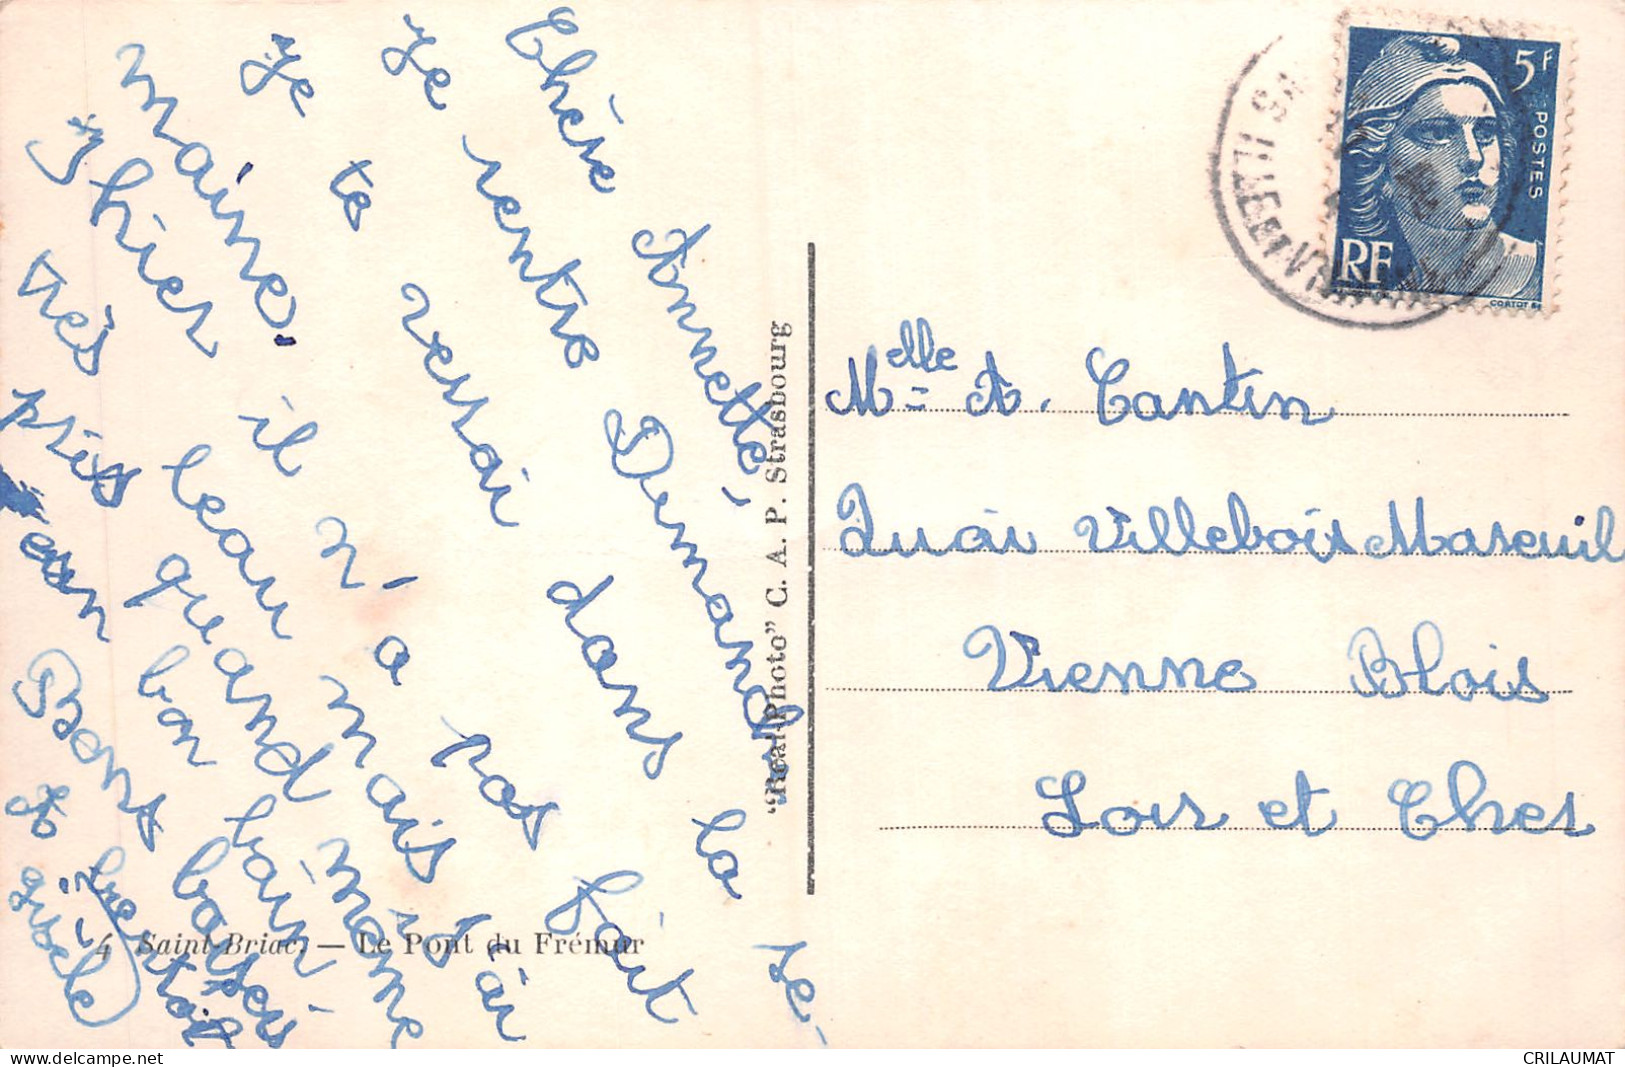 Chère Annette,
Je rentre Dimanche
je te verrai dans la se-
maine.
Hier il n'a pas fait
très beau mais j'ai
pris quand même
un bon bain.
Bons baisers
A bientôt
gisèle
Melle A. Cantin
Quai Villebois Mareuil
Vienne Blois
Loir et Cher
"Real-Photo" C. A. P. Strasbourg
4 Saint-Briac. — Le Pont du Frémur
5F
POSTES
RF
ILLE-ET-VILAINE
delcampe.net
CRILAUMAT